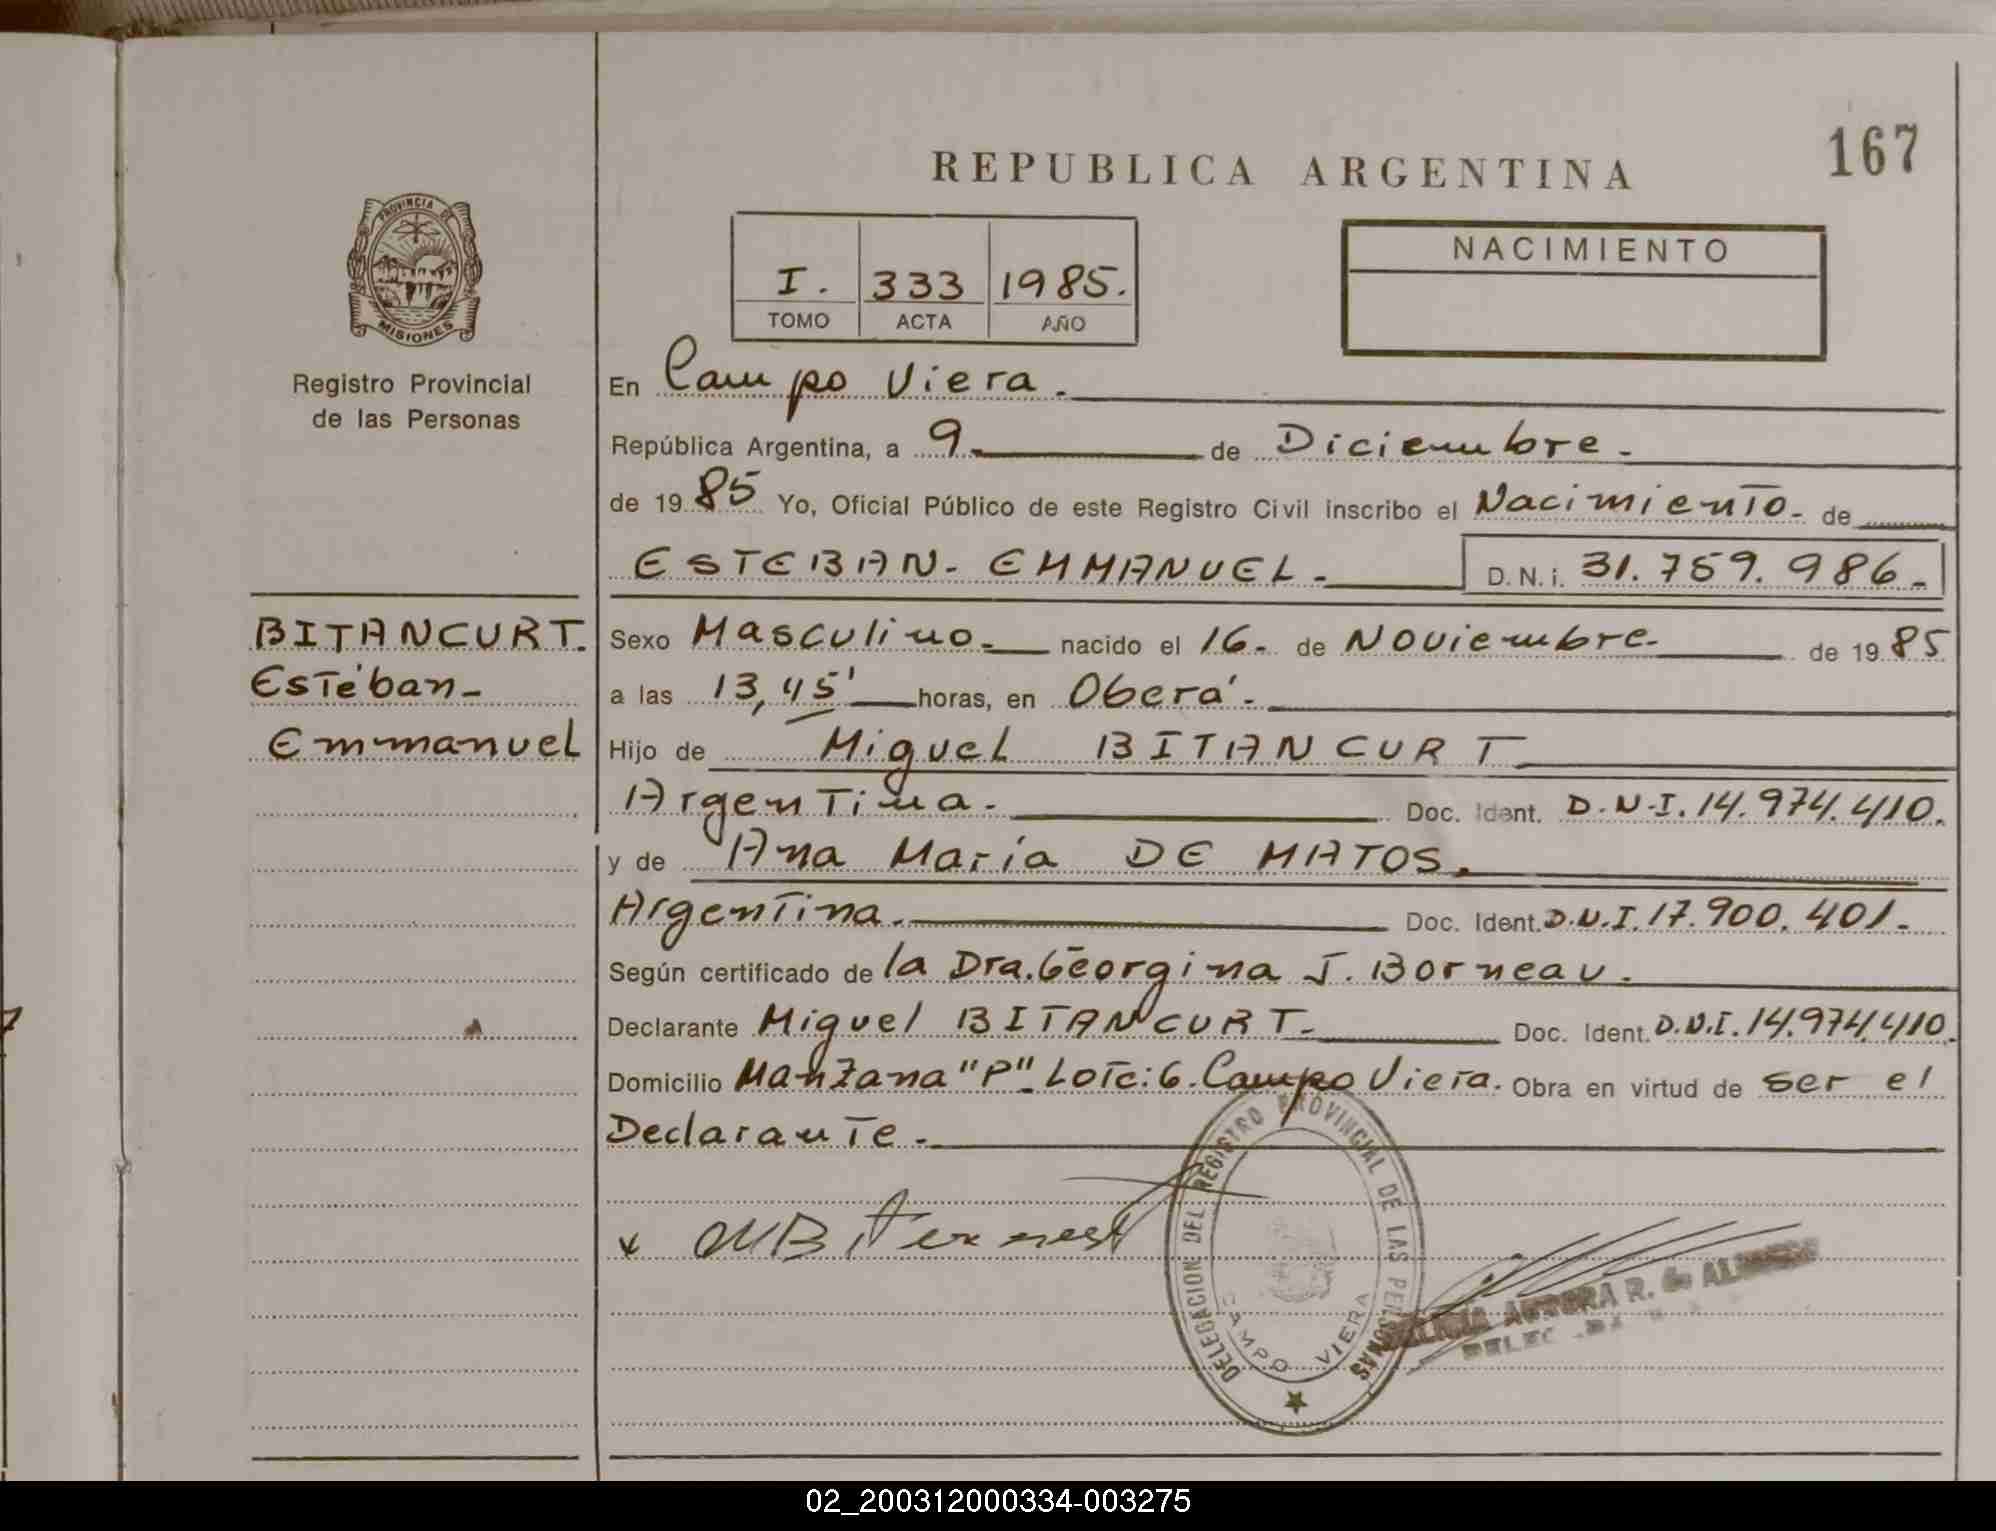 167
REPUBLICA ARGENTINA
PROVINCIA DE
MISIONES
Registro Provincial
de las Personas
I. 333 1985.
TOMO ACTA AÑO
NACIMIENTO
En Campo Viera.
República Argentina, a 9 de Diciembre.
de 1985 Yo, Oficial Público de este Registro Civil inscribo el Nacimiento. de
ESTEBAN- EMMANUEL. D.N.i. 31.759.986.
BITANCURT.
Esteban-
Emmanuel
Sexo Masculino. nacido el 16. de Noviembre. de 1985
a las 13,45' horas, en Oberá.
Hijo de Miguel BITANCURT
Argentina. Doc. Ident. D.N.I. 14.974.410.
y de Ana María DE MATOS.
Argentina. Doc. Ident. D.N.I. 17.900.401.
Según certificado de la Dra. Georgina J. Borneau.
Declarante Miguel BITANCURT. Doc. Ident. D.N.I. 14.974.410.
Domicilio Manzana "P" Lote: 6. Campo Viera. Obra en virtud de ser el
Declarante.
DELEGACION DEL REGISTRO PROVINCIAL DE LAS PERSONAS
CAMPO VIERA
AURORA R. de
02_200312000334-003275